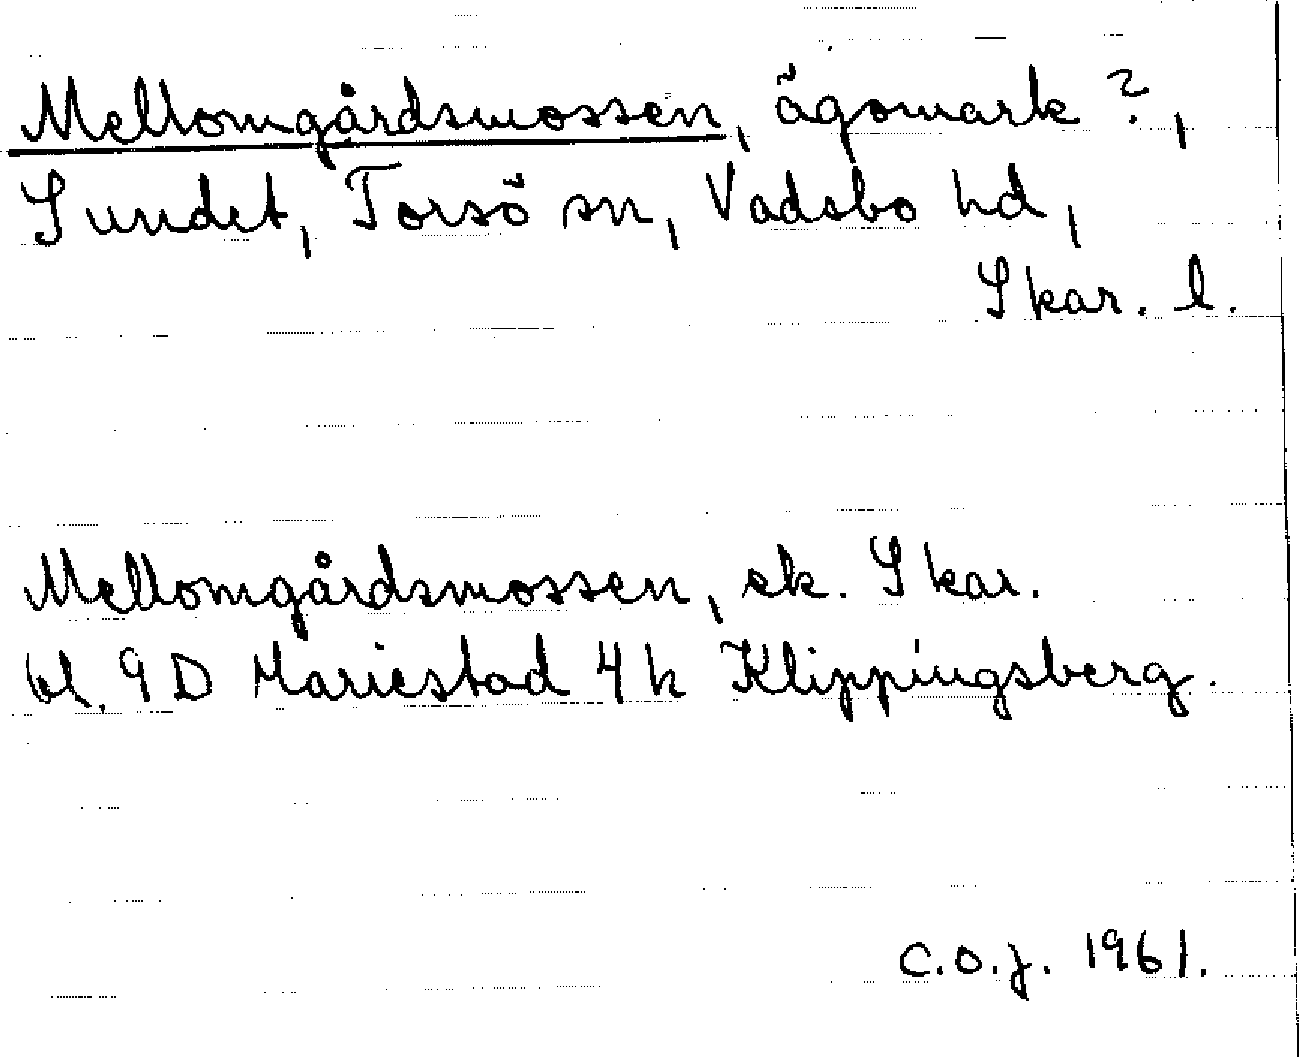 Mellomgårdsmossen, ägomark ?,
Sundet, Torsö sn, Vadsbo hd,
Skar. l.
Mellomgårdsmossen, ek. Skar.
bl. 9 D Mariestad 4 h Klippingsberg.
C.O.J. 1961.